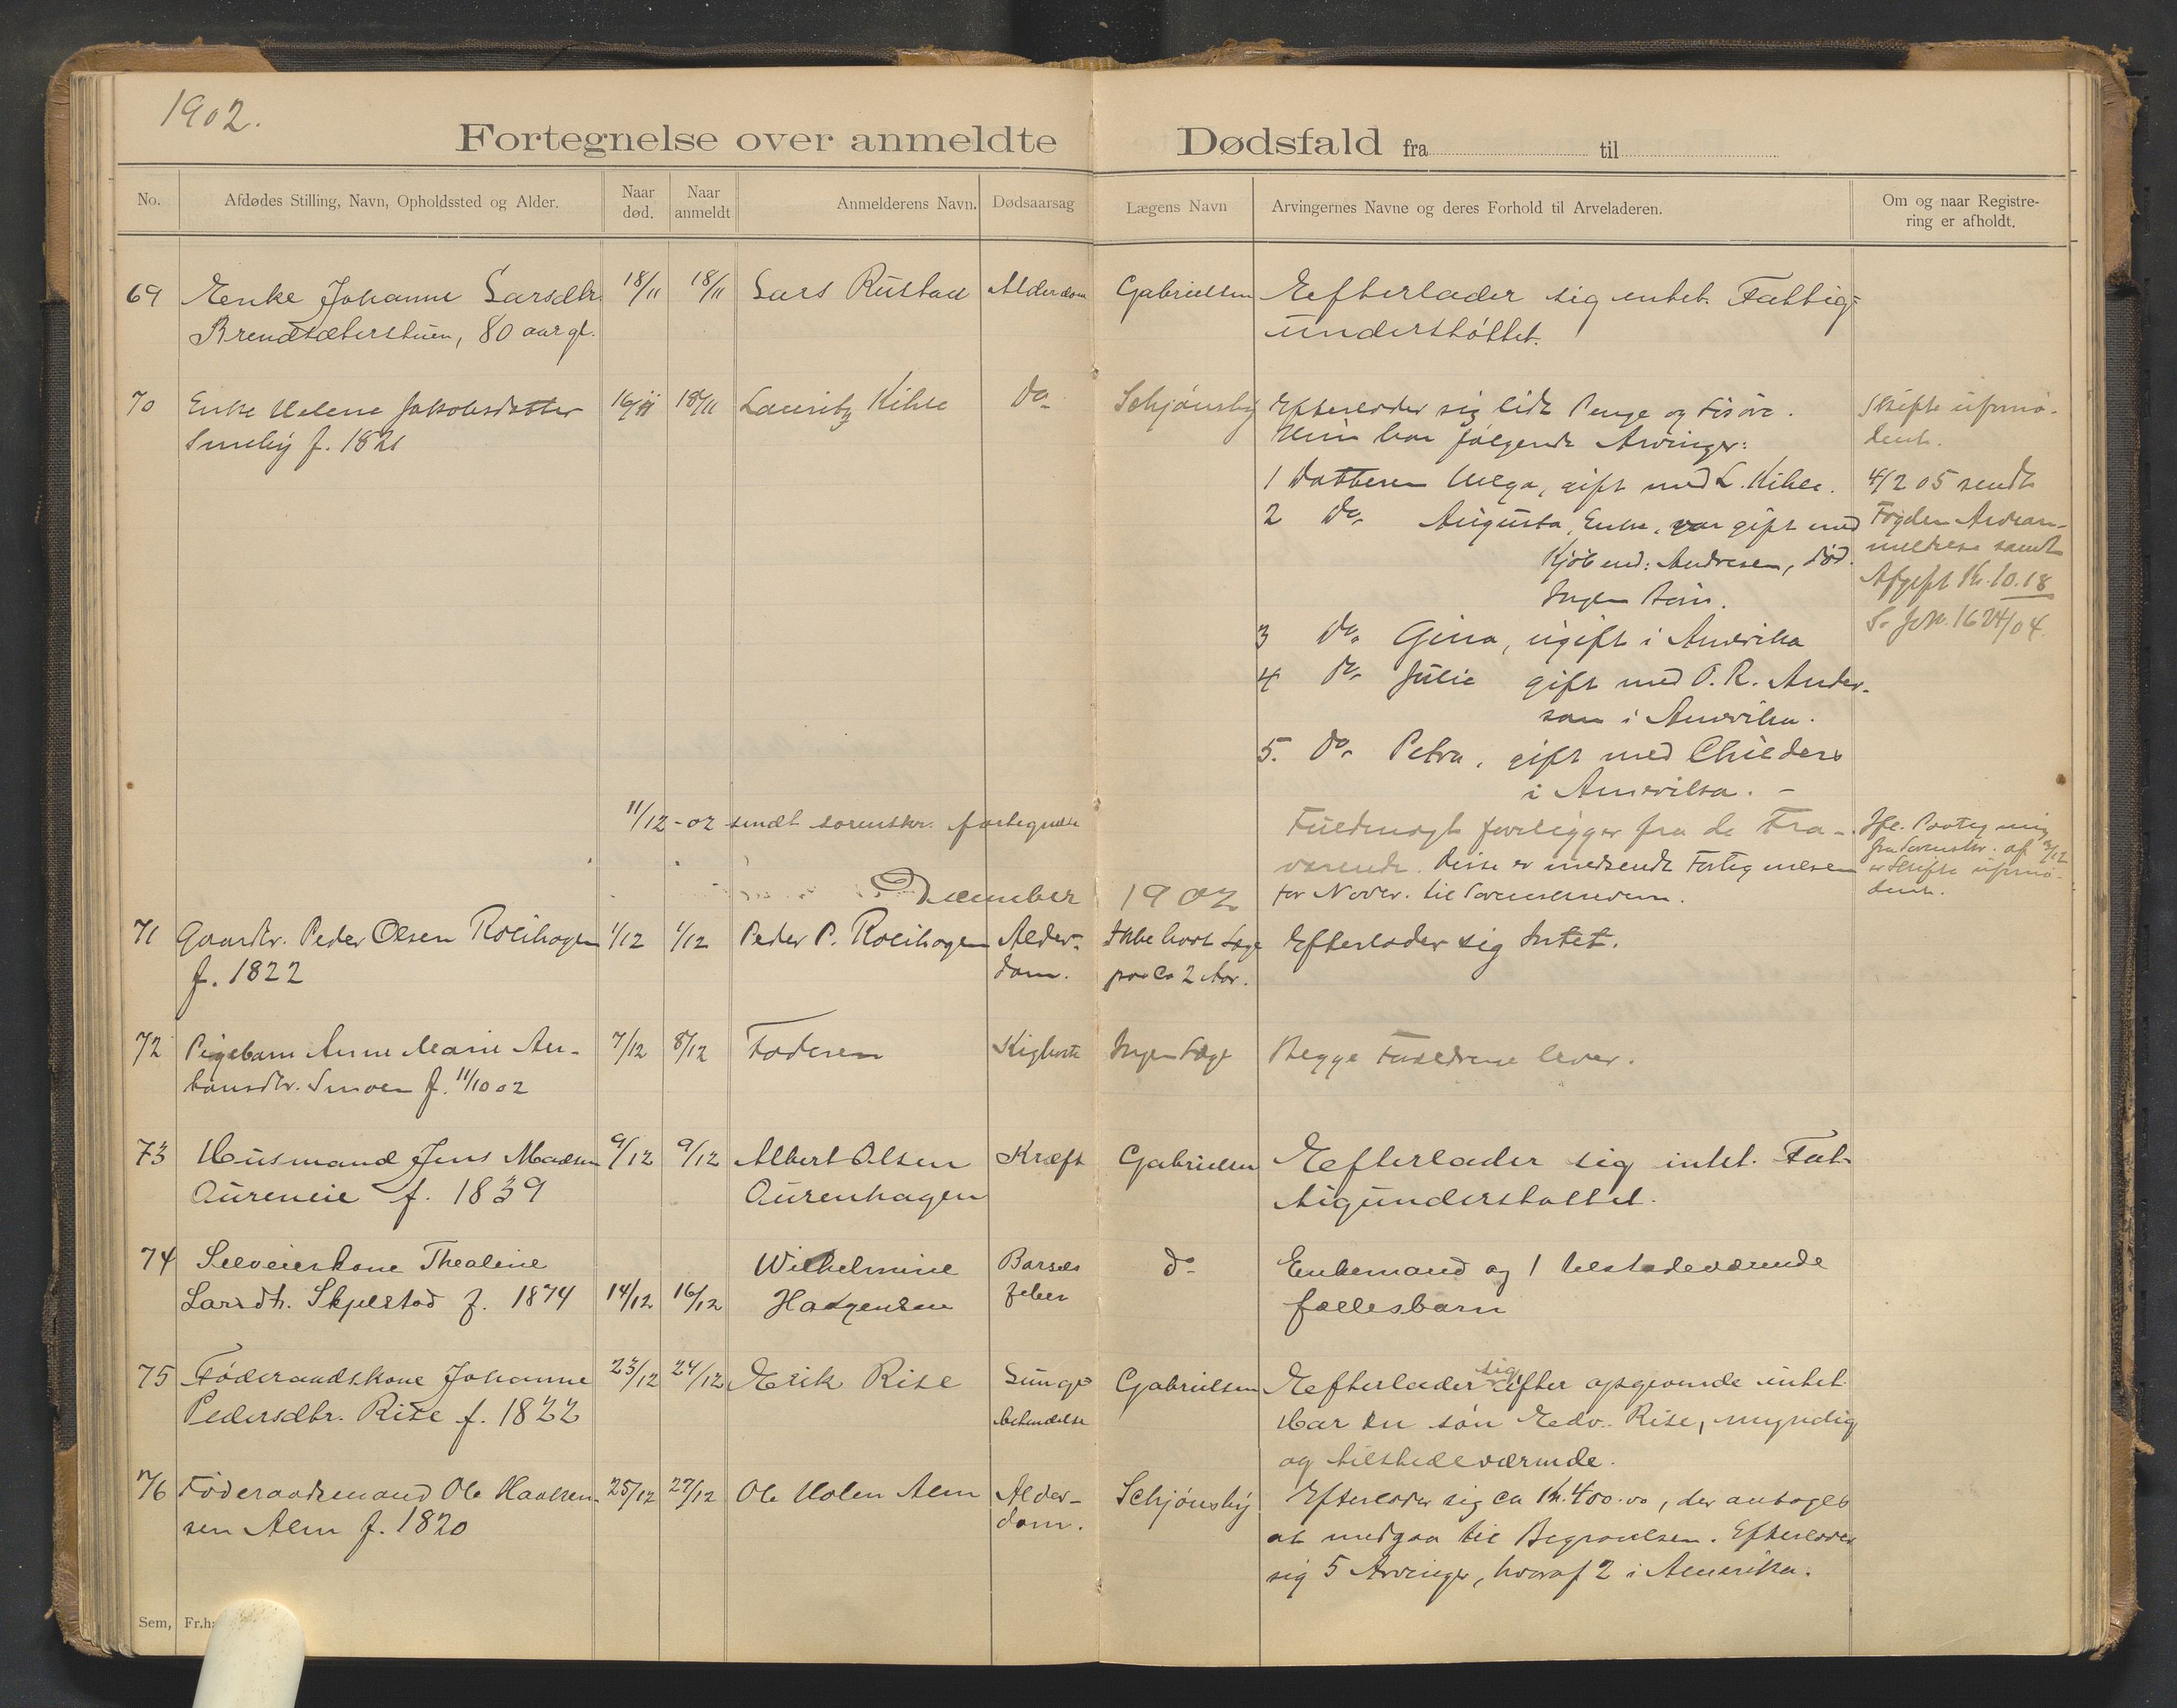 1902.
Fortegnelse over anmeldte Dødsfald fra til
No. Afdødes Stilling, Navn, Opholdssted og Alder. Naar død. Naar anmeldt Anmelderens Navn. Dødsaarsag Lægens Navn Arvingernes Navne og deres Forhold til Arveladeren. Om og naar Registre-
ring er afholdt.
69 Enke Johanne Larsdtr 18/11 18/11 Lars Rustad Alderdom Gabrielsen Efterlader sig intet. Fattig-
Brendsæterstuen, 80 aar gl. understøttet.
70 Enke Helene Jakobsdatter 16/11 18/11 Lauritz Kihle Do. Schjønsby Efterlader sig lidt Penge og Løsøre. Skifte ufornø-
Smeby f. 1821 Hun har følgende Arvinger: dent.
1 Datteren Helga, gift med L. Kihle. 4/2 05 sendt
2 Do. Augusta, Enke, var gift med Fogden Arvean-
Kjøbmd: Andresen, død. meldelse samt
Ingen Børn. Afgift Kr. 10.18
3 Do. Gina, ugift i Amerika S. Jok. 1624/04
4 Do. Julie gift med O. R. Ander-
son i Amerika.
5. Do. Petra, gift med Childers
i Amerika. –
11/12-02 sendt sorenskr. fortegnelse Fuldmagt foreligger fra de Fra-
værende. Disse er medsendt Fortegnelsen
for Novbr. til Sorenskriveren.
fra Sorenskr. af 3/12
er Skifte ufornø-
dent.
December 1902
71 Gaardbr. Peder Olsen Rolihagen 1/12 1/12 Peder P. Rolihagen Alder- Ikke havt Læge Efterlader sig Intet.
f. 1822 dom. paa ca 2 Aar.
72 Pigebarn Anne Marie An- 7/12 8/12 Faderen Kighoste Ingen Læge Begge Forældrene lever.
tonsdtr. Smoen f. 11/10 02
73 Husmand Jens Madsen 9/12 9/12 Albert Olsen Kræft Gabrielsen Efterlader sig intet. Fat-
Aureneie f. 1839 Aurenhagen tigunderstøttet.
74 Selveierkone Thealine Wilhelmine Barsel do Enkemand og 1 tilstedeværende
Larsdt. Skjelstad f. 1874 14/12 16/12 Haagensen feber fællesbarn
75 Føderaadskone Johanne 23/12 24/12 Erik Rise Lunge Gabrielsen Efterlader sig efter opgivende intet.
Pedersdtr. Rise f. 1822 betændelse Har en søn Edv. Rise, myndig
og tilstedeværende.
76 Føderaadsmand Ole Haakon- 25/12 27/12 Ole Holen Alm Alder- Schjønsby Efterlader sig ca Kr. 400.00, der antages
sen Alm f. 1820 dom. at medgaa til Begravelsen. Efterlader
sig 5 Arvinger, hvoraf 2 i Amerika.
Sem, Fr.ha